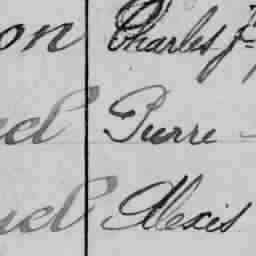 on Charles J
el Pierre
uel Alexis